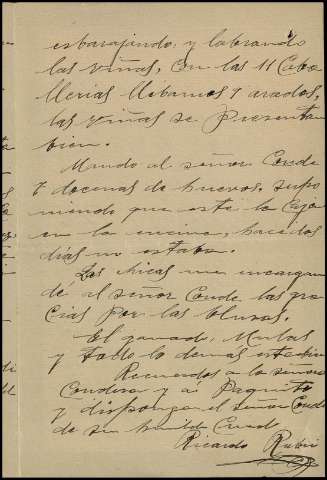 esbarajindo, y labrando
las viñas, con las 11 Caba
llerias llebamos 7 arados,
las viñas se presentan
bien.
Mando al señor Conde
7 docenas de huevos, supo
niendo que este la
en la cocina, hace dos
dias no estaba.
Las chicas me encargan
dé al señor Conde las gra
cias por las blusas.
El ganado, Mulas
y todo lo demas esta bien
Recuerdos a la señora
Condesa y á Paquito
y disponga el señor Conde
de su humilde Criado
Ricardo Rubio